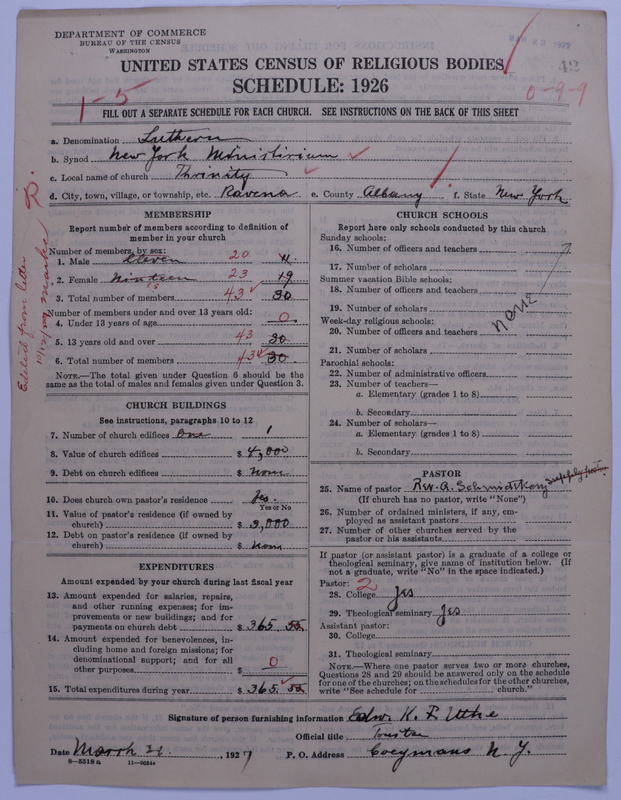 DEPARTMENT OF COMMERCE
BUREAU OF THE CENSUS
WASHINGTON
42
UNITED STATES CENSUS OF RELIGIOUS BODIES
SCHEDULE: 1926
1-5
0-9-9
FILL OUT A SEPARATE SCHEDULE FOR EACH CHURCH. SEE INSTRUCTIONS ON THE BACK OF THIS SHEET
a. Denomination Luthern
b. Synod New York Ministirium
c. Local name of church Thrinity
d. City, town, village, or township, etc. Ravena e. County Albany f. State New York
Edited from letter
MEMBERSHIP
Report number of members according to definition of
member in your church
Number of members, by sex:
1. Male Eleven 20 11
2. Female Nineteen 23 19
3. Total number of members 43 30
Number of members under and over 13 years old:
4. Under 13 years of age 0
5. 13 years old and over 43 30
6. Total number of members 43 30
NOTE.—The total given under Question 6 should be the
same as the total of males and females given under Question 3.
CHURCH BUILDINGS
See instructions, paragraphs 10 to 12
7. Number of church edifices One 1
8. Value of church edifices $ 4,000
9. Debt on church edifices $ None
10. Does church own pastor's residence Yes.
Yes or No
11. Value of pastor's residence (if owned by
church) $ 3,000
12. Debt on pastor's residence (if owned by
church) $ None
EXPENDITURES
Amount expended by your church during last fiscal year
13. Amount expended for salaries, repairs,
and other running expenses; for im-
provements or new buildings; and for
payments on church debt $ 365.55
14. Amount expended for benevolences, in-
cluding home and foreign missions; for
denominational support; and for all
other purposes $ 0
15. Total expenditures during year $ 365.55
CHURCH SCHOOLS
Report here only schools conducted by this church
Sunday schools:
16. Number of officers and teachers
17. Number of scholars
Summer vacation Bible schools:
18. Number of officers and teachers
19. Number of scholars
none
Week-day religious schools:
20. Number of officers and teachers
21. Number of scholars
Parochial schools:
22. Number of administrative officers
23. Number of teachers—
a. Elementary (grades 1 to 8)
b. Secondary
24. Number of scholars—
a. Elementary (grades 1 to 8)
b. Secondary
PASTOR
25. Name of pastor Rev. A. Schmidtkonz supply pastor
(If church has no pastor, write "None")
26. Number of ordained ministers, if any, em-
ployed as assistant pastors
27. Number of other churches served by the
pastor or his assistants
If pastor (or assistant pastor) is a graduate of a college or
theological seminary, give name of institution below. (If
not a graduate, write "No" in the space indicated.)
Pastor: 2
28. College Yes
29. Theological seminary Yes
Assistant pastor:
30. College
31. Theological seminary
NOTE.—Where one pastor serves two or more churches,
Questions 28 and 29 should be answered only on the schedule
for one of the churches; on the schedules for the other churches,
write "See schedule for church."
Signature of person furnishing information Edw. K. F. Uthe
Official title Trustee
Date March 21, 1927 P. O. Address Coeymans N. Y.
8-5518a 11-9054a